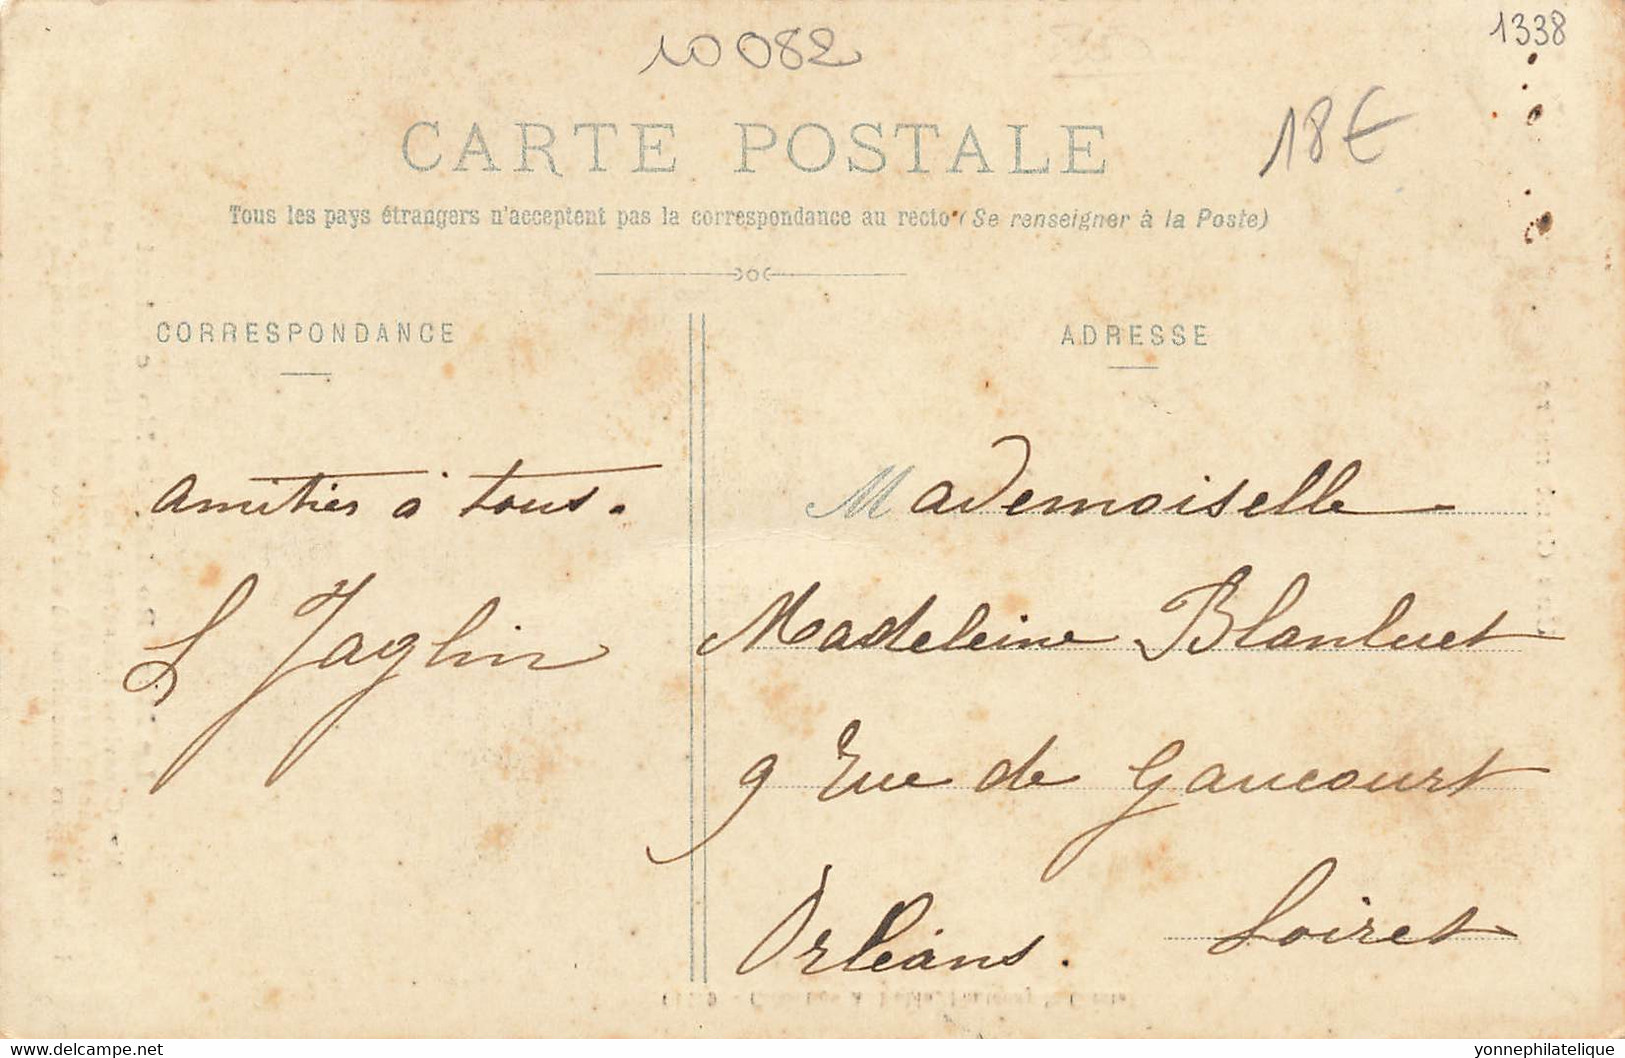 10082
1338
CARTE POSTALE
18€
Tous les pays étrangers n'acceptent pas la correspondance au recto (Se renseigner à la Poste)
CORRESPONDANCE
ADRESSE
amitiés à tous.
L Jaglin
Mademoiselle
Madeleine Blanluet
9 Rue de Gaucourt
Orléans. Loiret
www.delcampe.net
yonnephilatelique